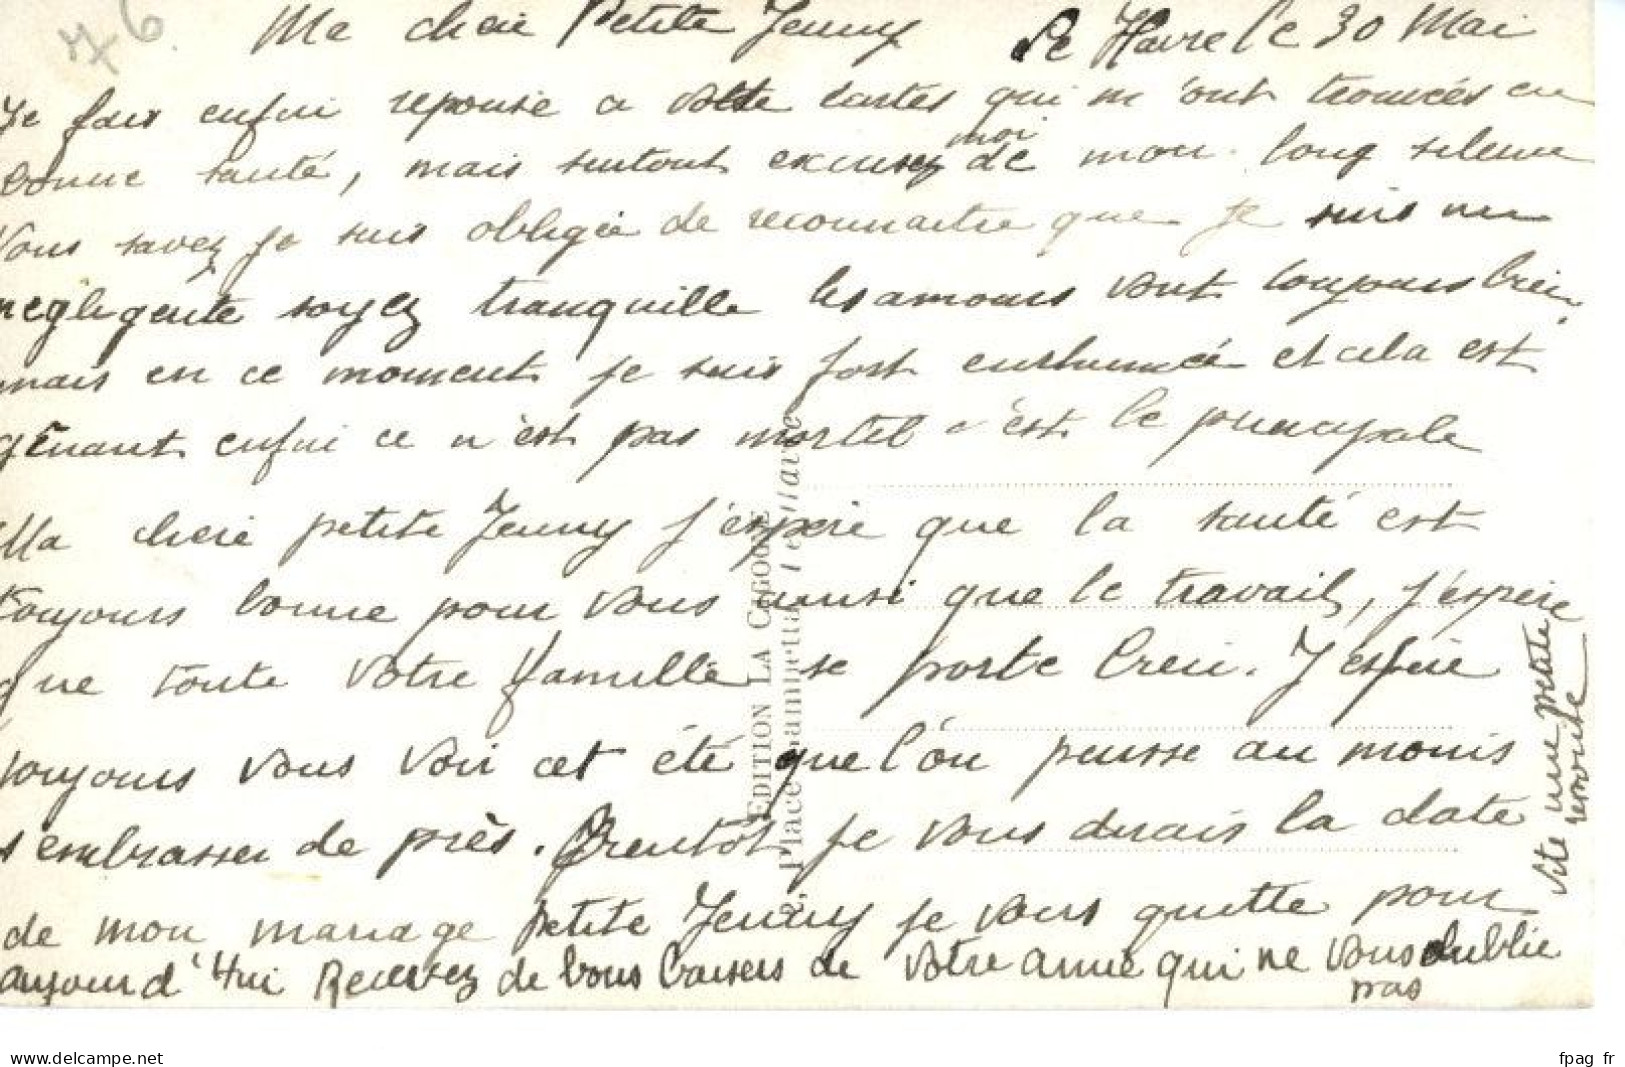 76
Ma cheie Petite Jenny Le Havre le 30 Mai
Je fais enfin reponse a votre cartes qui m'ont trouvées en
bonne santé, mais surtout excusez moi de mon long silence
Vous savez je suis obligée de reconnaitre que je suis une
negligente soyez tranquille les amours vont toujours bien,
mais en ce moment je suis fort enrhumée et cela est
gênant enfin ce n'est pas mortel c'est le principale
Ma cheie petite Jenny j'espere que la santé est
toujours bonne pour vous ainsi que le travail, j'espere
que toute votre famille se porte bien. J'espere
toujours vous voir cet été que l'on puisse au moins
s'embrasser de près. Bientôt je vous dirais la date
de mon mariage petite Jenny je vous quitte pour
aujourd'hui Recevez de bons baisers de votre amie qui ne vous oublie
pas
Vite une petite
reponse
EDITION LA CIGOGNE
delcampe.net
fpag_fr